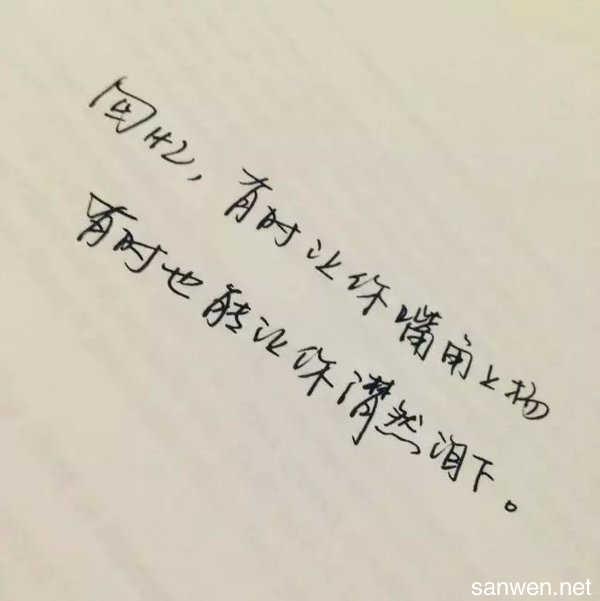 回忆,有时让你嘴角上扬
有时也能让你潸然泪下。
sanwen.net